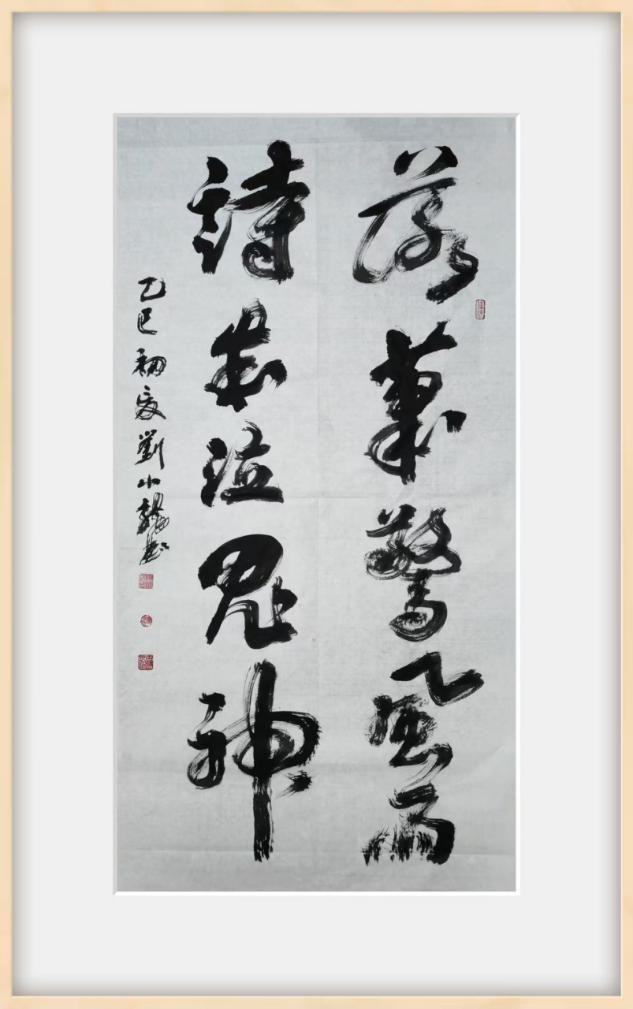 落筆驚風雨
詩成泣鬼神
乙巳初夏劉小龍書